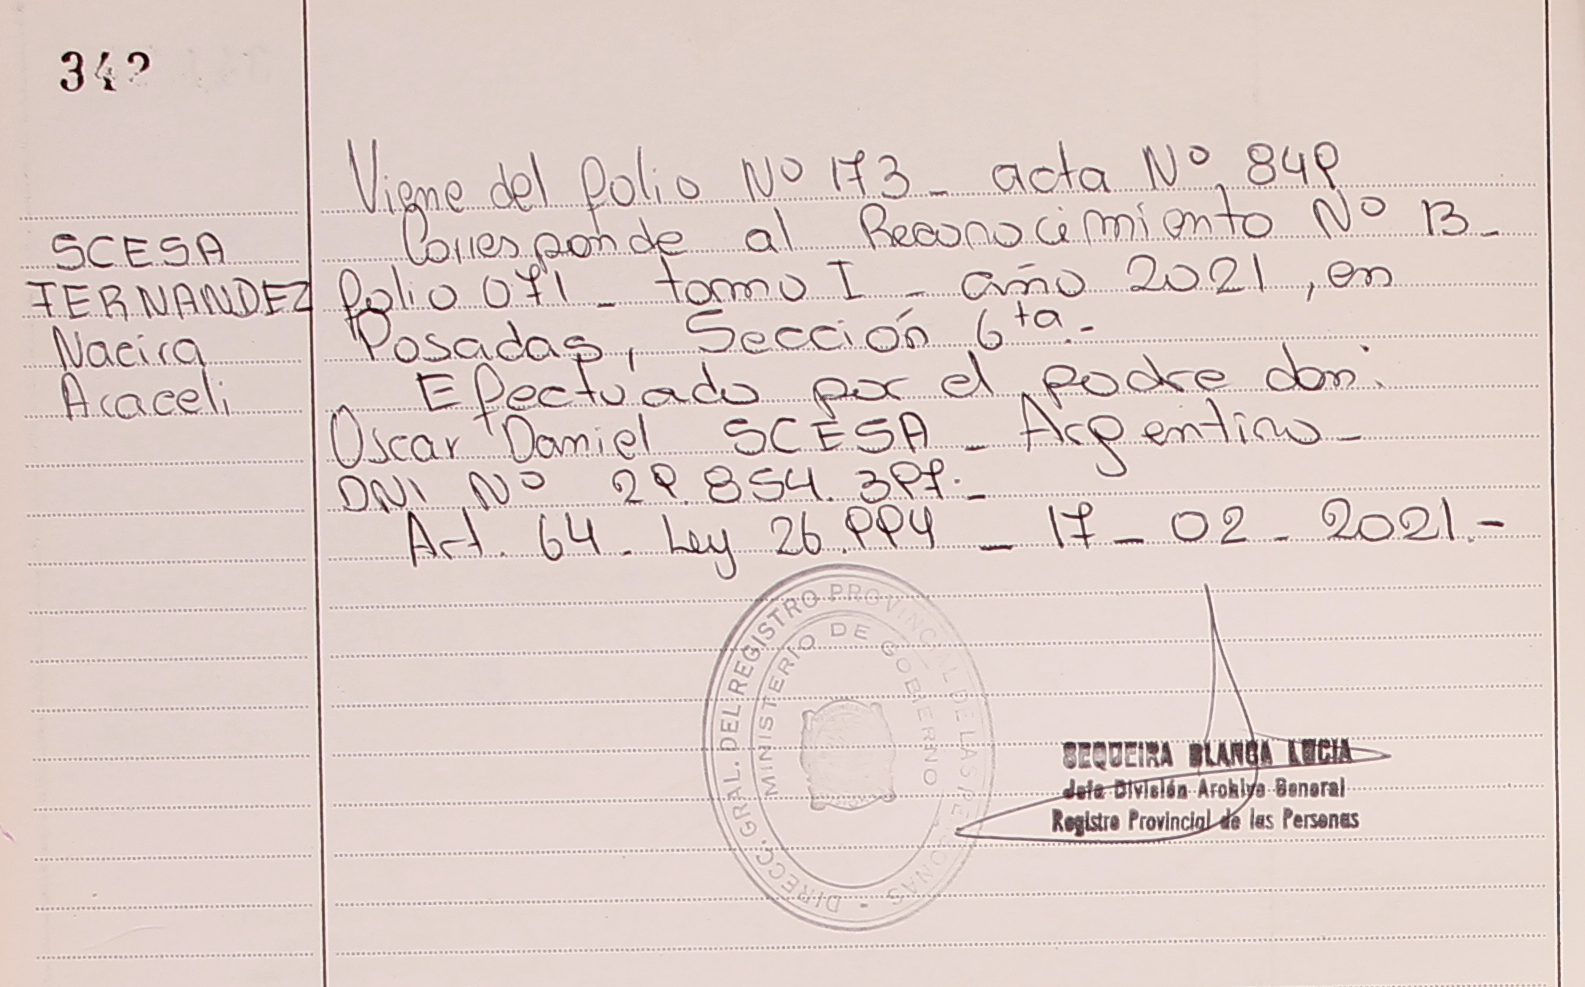 342
Viene del folio Nº 173 - acta Nº 849
SCESA
FERNANDEZ
Naeira
Araceli
Corresponde al Reconocimiento Nº 13 -
folio 071 - tomo I - año 2021, en
Posadas, Sección 6ta.-
Efectuado por el padre don:
Oscar Daniel SCESA - Argentino -
DNI Nº 29.854.397.-
Art. 64 - Ley 26.994 - 17 - 02 - 2021.-
DIRECC. GRAL. DEL REGISTRO PROVINCIAL DE LAS PERSONAS -
MINISTERIO DE GOBIERNO
SEQUEIRA BLANCA LUCIA
Jefa División Archivo General
Registro Provincial de las Personas